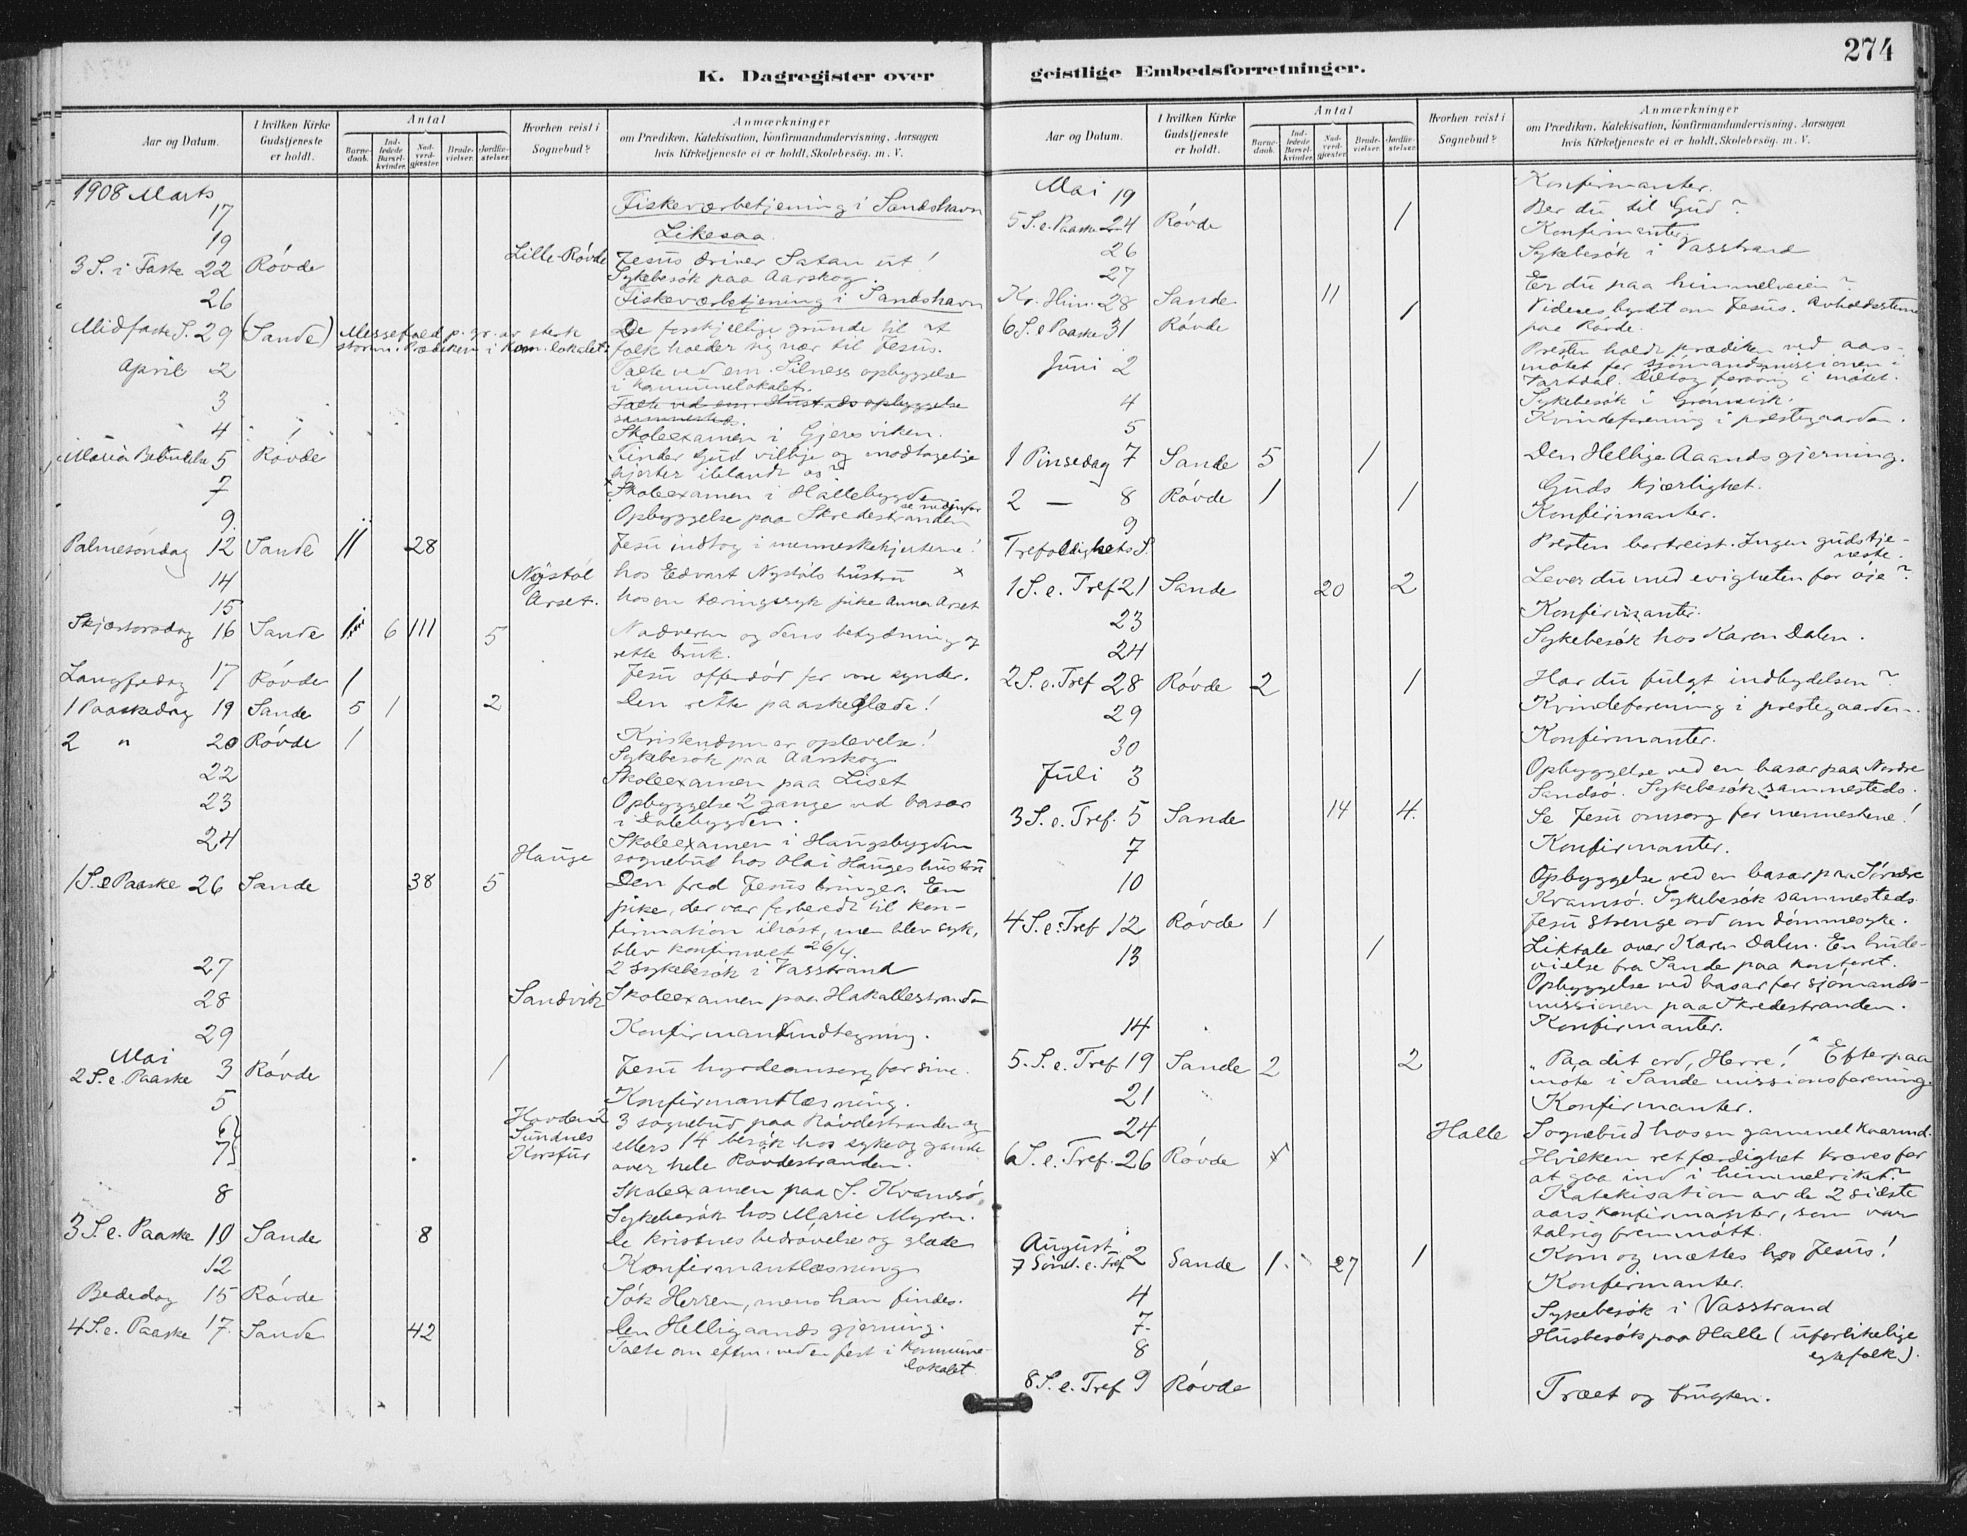 274
K. Dagregister over
Aar og Datum.
I hvilken Kirke Gudstjeneste er holdt.
Antal
Barnedaab.
Indledede Barselkvinder.
Nadverdgjæster.
Brudevielser.
Jordfæstelser.
Hvorhen reist i Sognebud?
Anmærkninger
om Prædiken, Katekisation, Konfirmandundervisning, Aarsagen
hvis Kirketjeneste ei er holdt, Skolebesög. m. V.
1908 Marts
17 Fiskeværbetjening i Sandshavn
19 Likesaa.
3 S. i Faste 22 Røvde Lille-Røvde Jesus driver Satan ut!
Sykebesök paa Aarskog.
26 Fiskeværbetjening i Sandshavn
Midfaste S. 29 (Sande) Messefald p. gr. av sterk De forskjellige grunde til at
storm. Prædiken i kom. lokalet: folk holder sig nær til Jesus.
April 2 Talte ved em. Silness opbyggelse
i kommunelokalet.
3 Talte ved em. Hustads opbyggelse
sammesteds.
4 Skoleexamen i Gjersviken.
Mariæ Bebudelse 5 Røvde Finder Gud villige og modtagelige
hjerter iblandt os?
7 Skoleexamen i Hallebygden
se nedenfor
9. Opbyggelse paa Skredestranden
Palmesöndag 12 Sande 11 28 Jesu indtog i menneskehjerterne!
14 Nystöl hos Edvart Nystöls hustru x
15 Aarset. hos en tæringssyk pike Anna Arset
Skjærtorsdag 16 Sande 6 111 5 Nadveren og dens betydning og
rette bruk.
Langfredag 17 Røvde 1 Jesu offerdöd for vore synder.
1 Paaskedag 19 Sande 5 1 2 Den rette paaskeglæde!
2 " 20 Røvde 1 Kristendom er oplevelse!
Sykebesök paa Aarskog
22 Skoleexamen paa Liset
23 Opbyggelse 2 gange ved basar
i Dalebygden.
24 Skoleexamen i Haugsbygden
Hauge sognebud hos Olai Hauges hustru
1 S. e Paaske 26 Sande 38 5 Den fred Jesus bringer. En
pike, der var forberedt til kon-
firmation ihöst, men blev syk,
blev konfirmert 26/4.
27 2 sykebesök i Vasstrand
28 Sandvik Skoleexamen paa Hakallestranden
29 Konfirmantindtegning.
Mai
2 S. e. Paaske 3 Røvde 1 Jesu hyrdeomsorg for sine.
5 Konfirmantlæsning.
6} Havden 2 3 sognebud paa Røvdestranden og
Sundnes ellers 14 besök hos syke og gamle
7} Korsfur over hele Røvdestranden.
8 Skoleexamen paa S. Kvamsö
Sykebesök hos Marie Myren.
3 S. e. Paaske 10 Sande 8 De kristnes bedrövelse og glæde
12 Konfirmantlæsning
Bededag 15 Røvde Søk Herren, mens han findes.
4 S. e. Paaske 17. Sande 42 Den Helligaands gjerning.
Talte om eftm. ved en fest i kommune-
lokalet.
geistlige Embedsforretninger.
Aar og Datum.
I hvilken Kirke Gudstjeneste er holdt.
Antal
Barnedaab.
Indledede Barselkvinder.
Nadverdgjæster.
Brudevielser.
Jordfæstelser.
Hvorhen reist i Sognebud?
Anmærkninger
om Prædiken, Katekisation, Konfirmandundervisning, Aarsagen
hvis Kirketjeneste ei er holdt, Skolebesög. m. V.
Mai 19 Konfirmanter.
5 S. e. Paaske 24 Røvde 1 Ber du til Gud?
26 Konfirmanter.
27 Sykebesök i Vasstrand
Kr. Him. 28 Sande 11 Er du paa himmelveien?
6 S. e Paaske 31 Røvde 1 Vidnesbyrdet om Jesus. Avholdsstevne
paa Røvde.
Juni 2 Presten holdt prædiken ved aars-
mötet for sjömandsmissionen i
Vartdal. Deltog forövrig i mötet.
4 Sykebesök i
5 Kvindeforening i prestegaarden.
1 Pinsedag 7 Sande 5 1 Den Hellige Aands gjerning.
2 — 8 Røvde 1 1 Guds kjærlighet.
9 Konfirmanter.
Trefoldighets S. Presten bortreist. Ingen gudstje-
neste.
1 S. e. Tref 21 Sande 20 2 Lever du med evigheten for öie?
23 Konfirmanter.
24 Sykebesök hos Karen Dalen.
2 S. e. Tref 28 Røvde 2 1 Har du fulgt indbydelsen?
29 Kvindeforening i prestegaarden.
30 Konfirmanter.
Juli 3 Opbyggelse ved en basar paa Nordre
Sandsö. Sykebesök sammesteds.
3 S. e. Tref. 5 Sande 14 4. Se Jesu omsorg for menneskene!
7 Konfirmanter.
10 Opbyggelse ved en basar paa Söndre
Kvamsö. Sykebesök sammesteds
4 S. e. Tref 12 Røvde 1 Jesu strenge ord om dömmesyke.
13 1 Liktale over Karen Dalen. En brude-
vielse fra Sande paa kontoret.
Opbyggelse ved basar for sjömands-
missionen paa Skredestranden.
14 Konfirmanter.
5. S. e. Tref 19 Sande 2 2 "Paa dit ord, Herre!" Efterpaa
möte i Sande missionsforening
21 Konfirmanter.
24 Halle Sognebud hos en gammel kvarmd.
6 S. e. Tref. 26 Røvde Hvilken retfærdighet kræves for
at gaa ind i himmelriket?
Katekisation av de 2 sidste
aars konfirmanter, som var
talrig fremmött.
August
7 Sönd. e. Tref 2 Sande 1 27 1 Kom og mættes hos Jesus!
4 Konfirmanter.
7. Sykebesök i Vasstrand
8 Husbesök paa Halle (uforlikelige
egtefolk).
8 S. e. Tref 9 Røvde Træet og frugten.